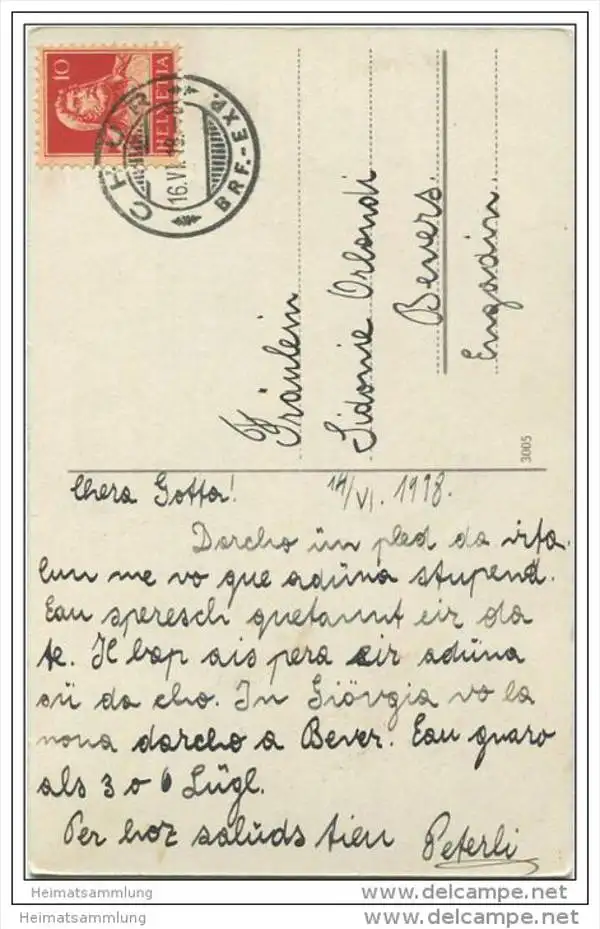 10
HELVETIA
CHUR
16.VI.18.
BRF.-EXP.
Fräulein
Sidonie Orlandi
Bevers.
Engadin.
3005
Chera Gotta! 14/VI. 1918.
Darcho ün pled da
me vo que adüna stupend.
Eau speresch quetaunt eir da
te. Il bap ais pera eir adüna
sü da cho. In Giövgia vo la
nona darcho a Bever. Eau quaro
als 3 o 6 Lügl.
Per hoz salüds tieu Peterli
Heimatsammlung delcampe.net
Heimatsammlung delcampe.net